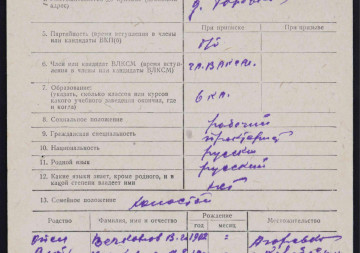 адрес)
д.
При приписке При призыве
5. Партийность (время вступления в члены
или кандидаты ВКП(б)
б/п
6. Член или кандидат ВЛКСМ (время вступ-
ления в члены или кандидаты ВЛКСМ)
чл. ВЛКСМ.
7. Образование:
(указать, сколько классов или курсов
какого учебного заведения окончил, где
и когда)
6 кл.
8. Социальное положение
рабочий
9. Гражданская специальность
тракторист
10. Национальность
русский
11. Родной язык
русский
12. Какие языки знает, кроме родного, и в
какой степени владеет ими
нет
13. Семейное положение
холостой
Родство Фамилия, имя и отчество Рождение Местожительство
год месяц
Отец 1902